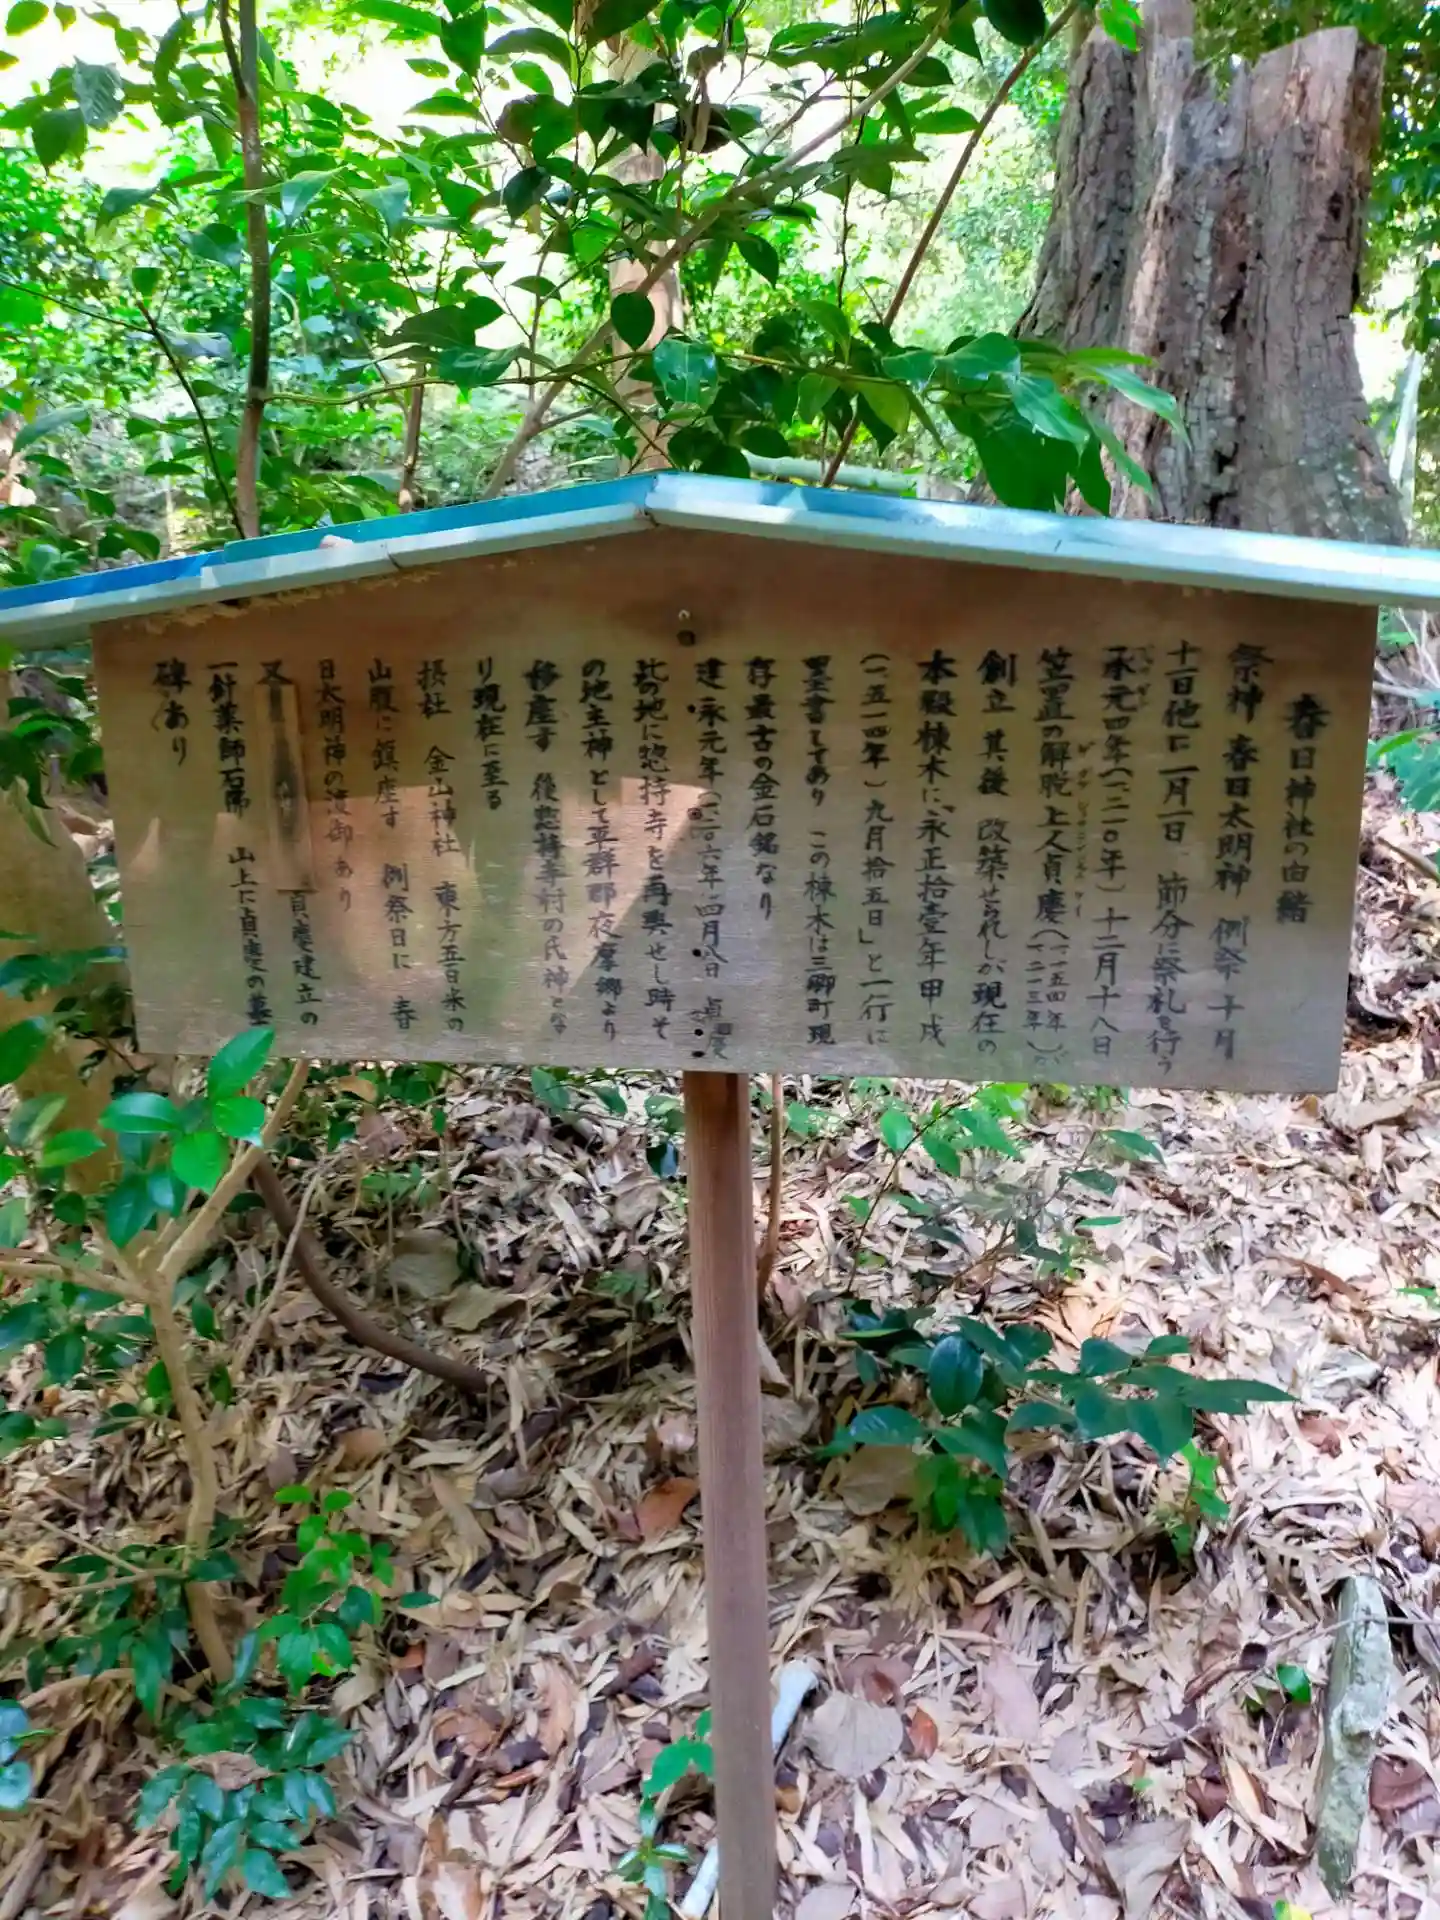 春日神社の由緒
祭神 春日大明神 例祭 十月
十一日他に一月一日 節分に祭礼を行う
承元四年(一二一〇年)十二月十八日
笠置の解脱上人貞慶(一一五四年 一二一三年)が
創立 其後 改築せられしが現在の
本殿棟木に「永正拾壹年甲戌
(一五一四年)九月拾五日」と一行に
墨書してあり この棟木は三郷町現
存最古の金石銘なり
建永元年(一二〇六年)四月八日 貞慶
此の地に惣持寺を再興せし時そ
の地主神として平群郡夜摩郷より
移座す 後惣持寺村の氏神とな
り現在に至る
摂社 金山神社 東方五百米の
山腹に鎮座す 例祭日に 春
日大明神の渡御あり
又 貞慶建立の
一針薬師石佛 山上に貞慶の墓
碑あり